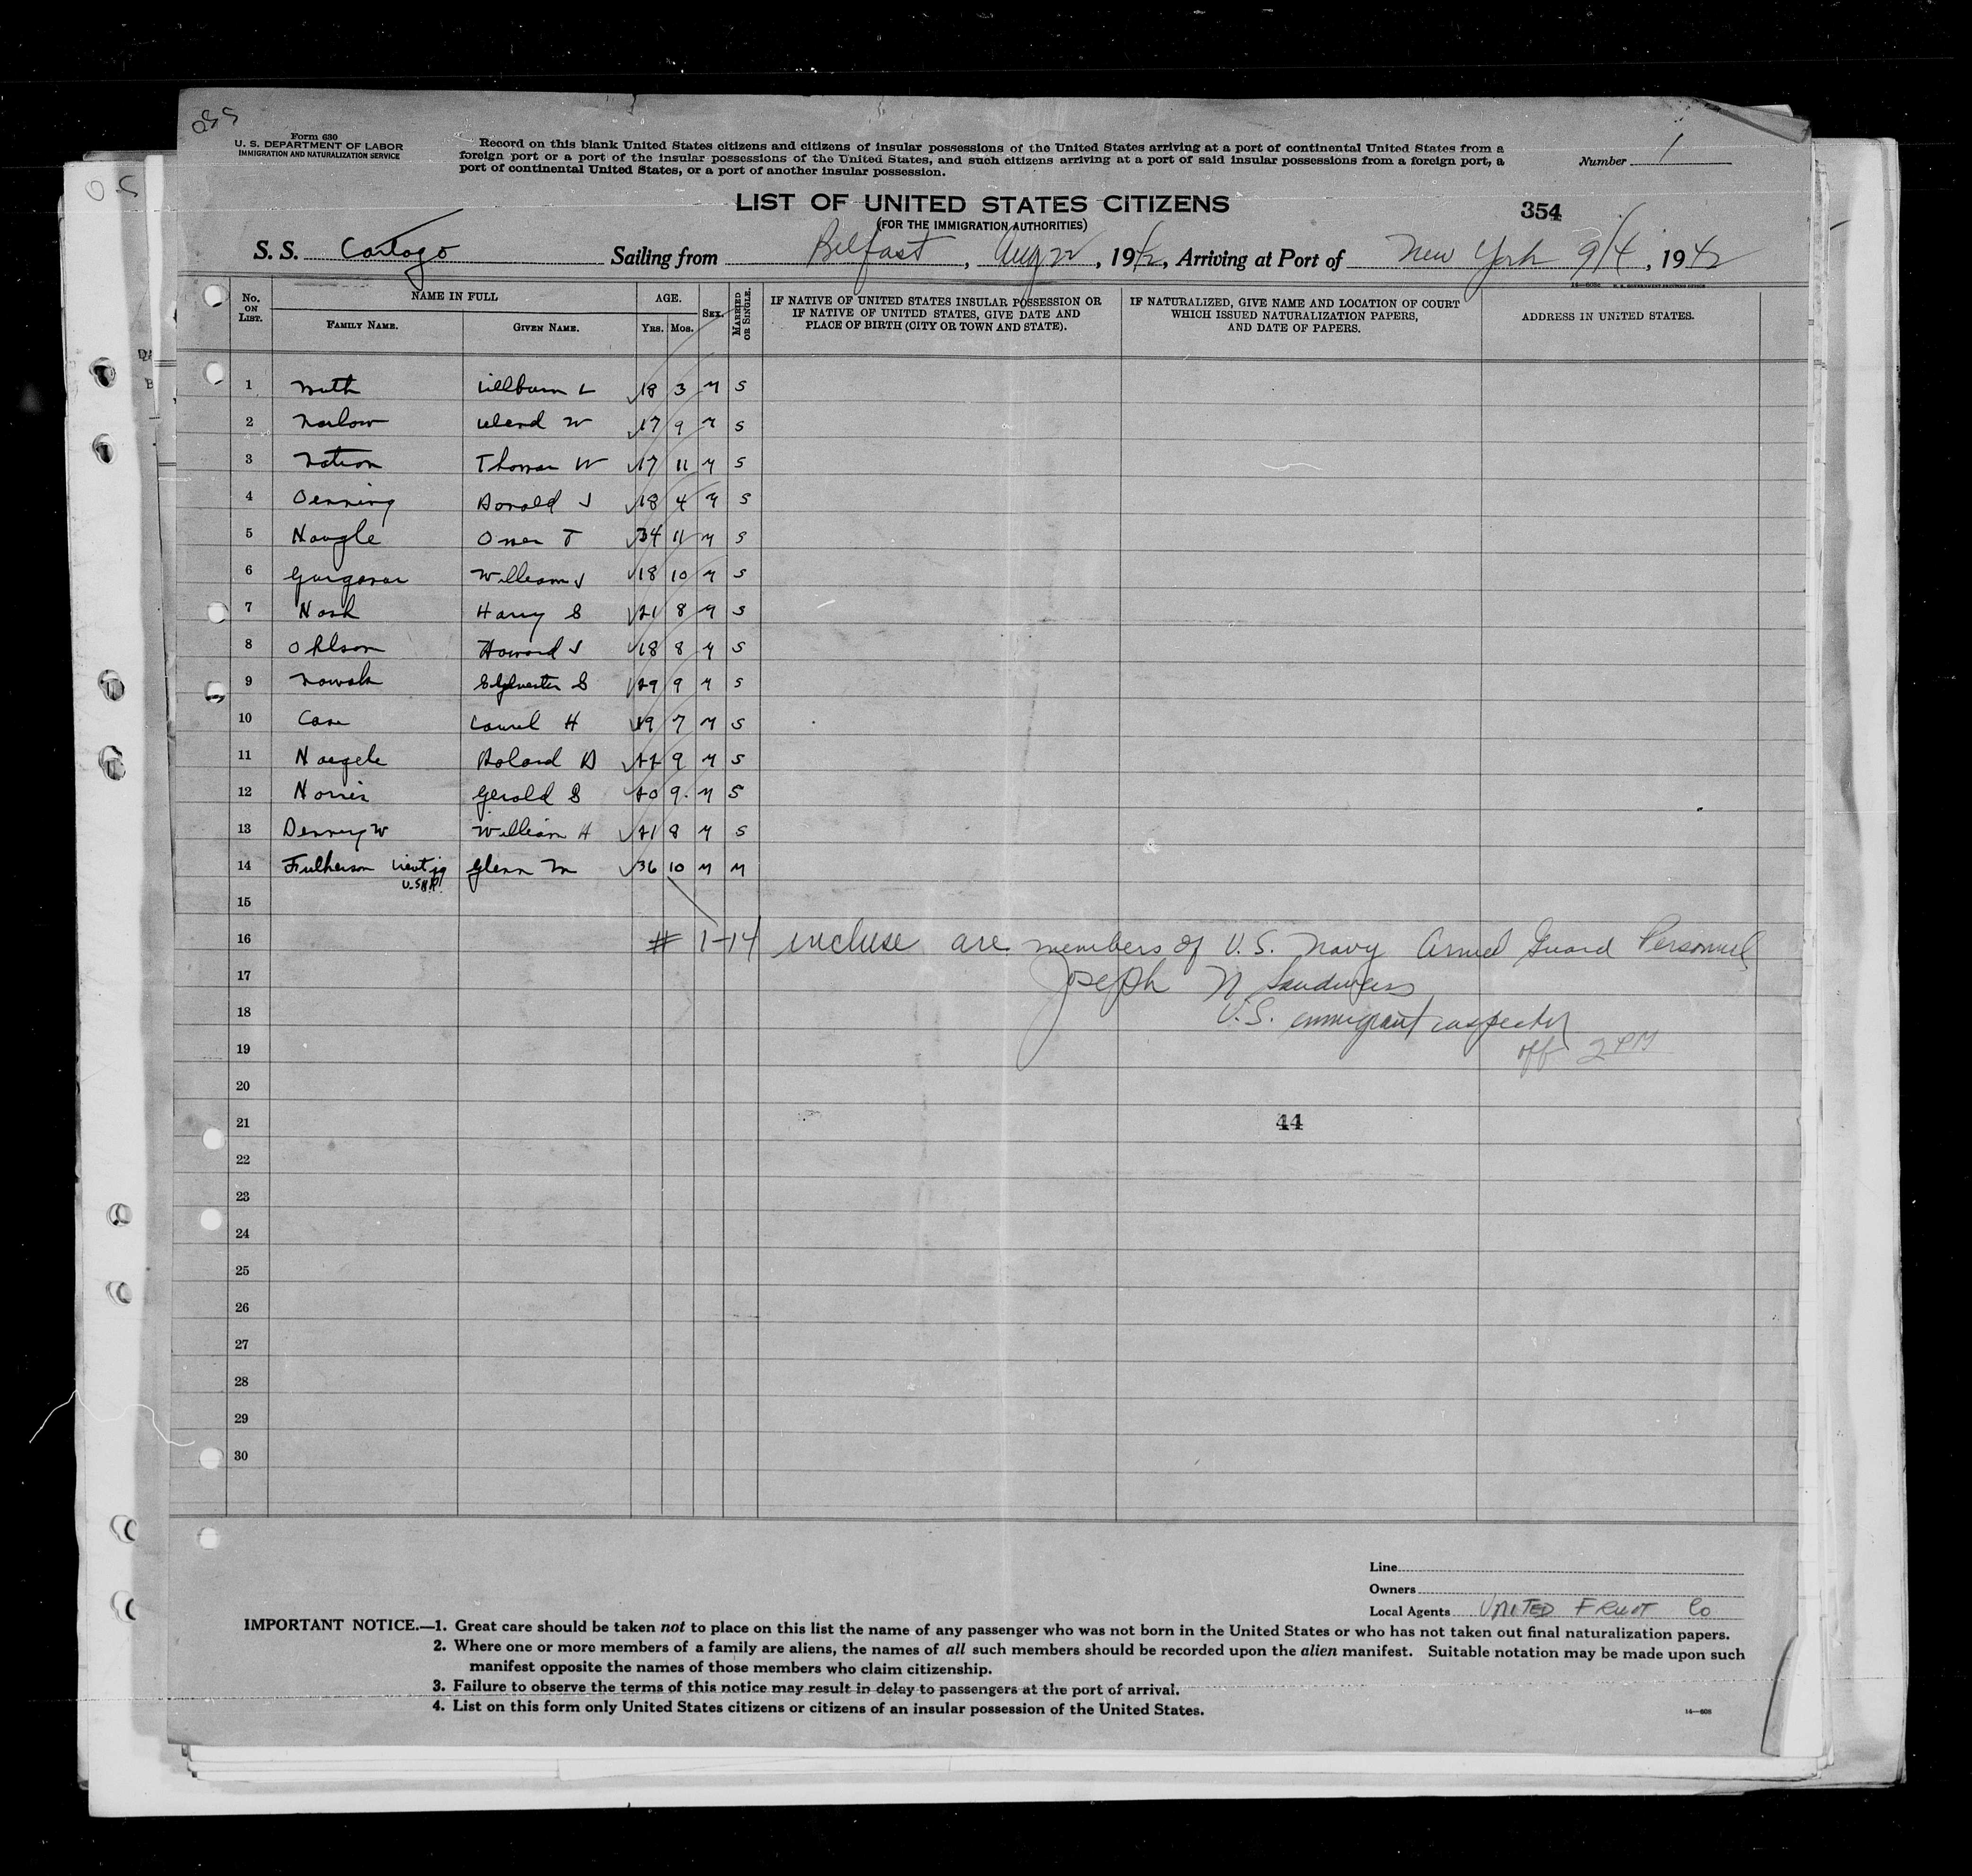 Form 630
U. S. DEPARTMENT OF LABOR
IMMIGRATION AND NATURALIZATION SERVICE
Record on this blank United States citizens and citizens of insular possessions of the United States arriving at a port of continental United States from a
foreign port or a port of the insular possessions of the United States, and such citizens arriving at a port of said insular possessions from a foreign port, a
port of continental United States, or a port of another insular possession.
Number 1
LIST OF UNITED STATES CITIZENS
(FOR THE IMMIGRATION AUTHORITIES)
354
S. S. Cartago Sailing from Belfast, Aug 22, 1942, Arriving at Port of New York 9/4, 1942
No. ON LIST.
NAME IN FULL
FAMILY NAME.
GIVEN NAME.
AGE.
YRS.
MOS.
SEX.
MARRIED OR SINGLE.
IF NATIVE OF UNITED STATES INSULAR POSSESSION OR
IF NATIVE OF UNITED STATES, GIVE DATE AND
PLACE OF BIRTH (CITY OR TOWN AND STATE).
IF NATURALIZED, GIVE NAME AND LOCATION OF COURT
WHICH ISSUED NATURALIZATION PAPERS,
AND DATE OF PAPERS.
ADDRESS IN UNITED STATES.
1 18 3 M S
2 W 17 9 M S
3 Thomas W 17 11 M S
4 Donald J 18 4 M S
5 Naugle Omer T 34 11 M S
6 William J 18 10 M S
7 Nash Harry S 21 8 M S
8 Ohlson Howard J 18 8 M S
9 Nowak Sylvester S 29 9 M S
10 H 19 7 M S
11 Naegele Roland D 22 9 M S
12 Norris Gerald S 20 9 M S
13 William H 21 8 M S
14 Fulkerson Lieut jg U.S.N.R. Glenn M 36 10 M M
15
16 # 1-14 incluse are members of U.S. Navy Armed Guard Personnel
17 Joseph N
18 U.S. immigrant inspector
19 off 2 PM
20
21 44
22
23
24
25
26
27
28
29
30
Line
Owners
Local Agents UNITED FRUIT Co
IMPORTANT NOTICE.—1. Great care should be taken not to place on this list the name of any passenger who was not born in the United States or who has not taken out final naturalization papers.
2. Where one or more members of a family are aliens, the names of all such members should be recorded upon the alien manifest. Suitable notation may be made upon such
manifest opposite the names of those members who claim citizenship.
3. Failure to observe the terms of this notice may result in delay to passengers at the port of arrival.
4. List on this form only United States citizens or citizens of an insular possession of the United States.
14—608